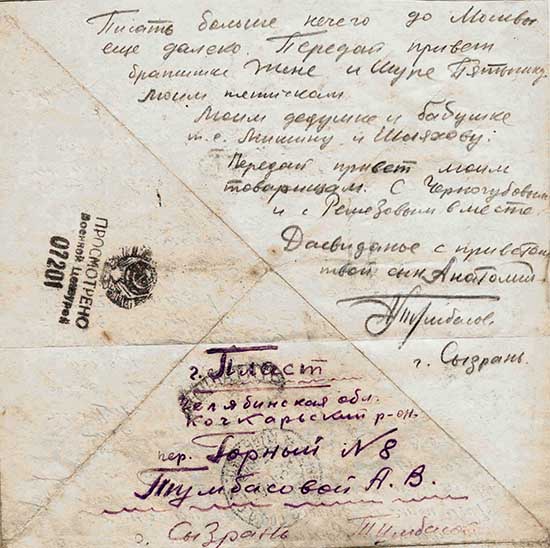 Писать больше нечего до Москвы
еще далеко. Передай привет
братишки Жене и Шуре Пятышкину
моим
Моим дедушке и бабушке
т.е. Мишину и Шляхову.
Передай привет моим
товарищам. С Черногубовым
и с Ремезовым вместе.
Досвиданье с приветом
твой сын Анатолий
Тумбасов
г. Сызрань.
ПРОСМОТРЕНО
Военной Цензурой
07201
г. Пласт
Челябинская обл.
Кочкарьский р-он.
пер. Горный №8
Тумбасовой А. В.
г. Сызрань Тумбасов